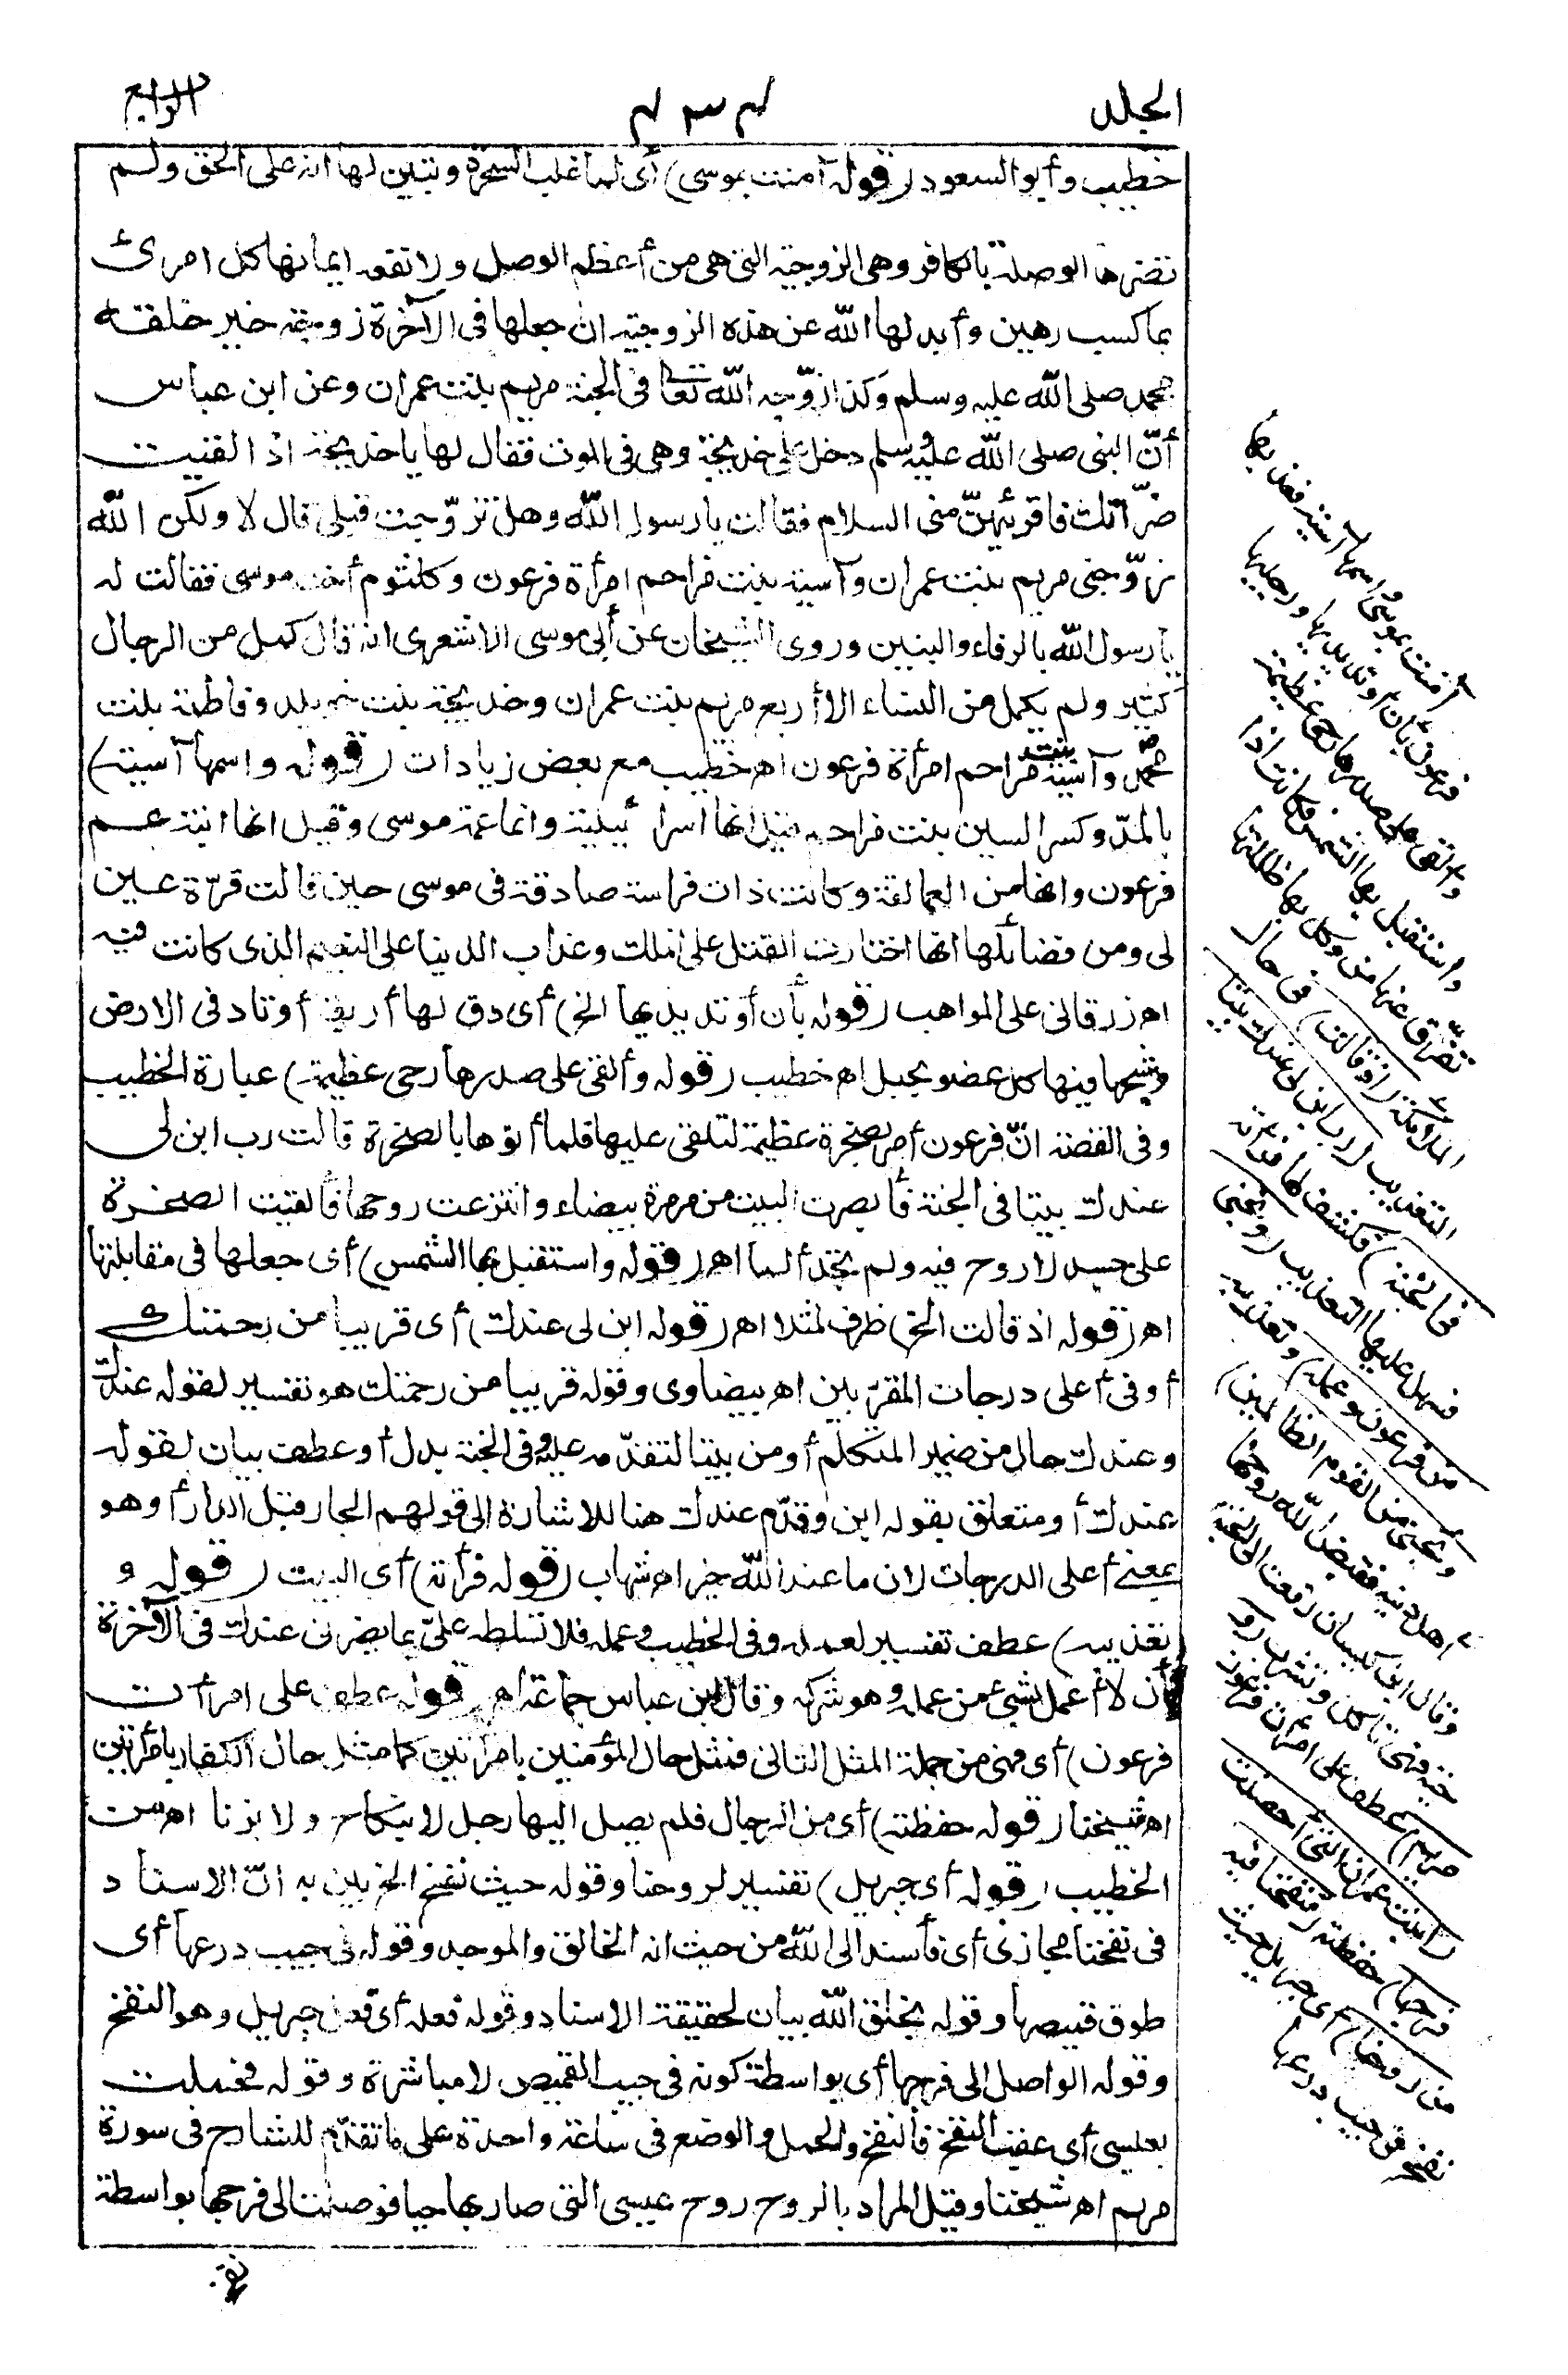 الجلد
٤٣٤
الرابع
خطيب وأبو السعود (قوله آمنت بموسى) أى لما غلب السحرة وتبين لها انه على الحق ولم
تضرها الوصلة بالكافر وهى الزوجية التى هى من أعظم الوصل ولا نفعه ايمانها كل امرئ
بما كسب رهين وأبدلها الله عن هذه الزوجية ان جعلها فى الآخرة زوجة خير خلقه
محمد صلى الله عليه وسلم وكذا زوّجه الله تعالى فى الجنة مريم بنت عمران وعن ابن عباس
أنّ النبى صلى الله عليه وسلم دخل على خديجة وهى فى الموت فقال لها يا خديجة اذا لقيت
ضرّاتك فاقرئيهنّ منى السلام فقالت يا رسول الله وهل تزوّجت قبلى قال لا ولكن الله
زوّجنى مريم بنت عمران وآسية بنت مزاحم امرأة فرعون وكلثوم أخت موسى فقالت له
يا رسول الله بالرفاء والبنين وروى الشيخان عن أبى موسى الاشعرى انه قال كمل من الرجال
كثير ولم يكمل من النساء الا أربع مريم بنت عمران وخديجة بنت خويلد وفاطمة بنت
محمد وآسية بنت مزاحم امرأة فرعون اه خطيب مع بعض زيادات (قوله واسمها آسية)
بالمدّ وكسر السين بنت مزاحم قيل انها اسرائيلية وانها عمة موسى وقيل انها ابنة عم
فرعون وانها من العمالقة وكانت ذات فراسة صادقة فى موسى حين قالت قرّة عين
لى ومن فضائلها انها اختارت القتل على الملك وعذاب الدنيا على النعيم الذى كانت فيه
اه زرقانى على المواهب (قوله بأن أوتد يديها الخ) أى دق لها أربعة أوتاد فى الارض
وشبحها فيها كل عضو بحبل اه خطيب (قوله وألقى على صدرها رحى عظيمة) عبارة الخطيب
وفى القصة انّ فرعون أمر بصخرة عظيمة لتلقى عليها فلما أتوها بالصخرة قالت رب ابن لى
عندك بيتا فى الجنة فأبصرت البيت من مرمرة بيضاء وانتزعت روحها فألقيت الصخرة
على جسد لا روح فيه ولم تجد ألما اه (قوله واستقبل بها الشمس) أى جعلها فى مقابلتها
اه (قوله اذ قالت الخ) ظرف لمثلا اه (قوله ابن لى عندك) أى قريبا من رحمتك
أو فى أعلى درجات المقرّبين اه بيضاوى وقوله قريبا من رحمتك هو تفسير لقوله عندك
وعندك حال من ضمير المتكلم أو من بيتا لتقدّمه عليه وفى الجنة بدل أو عطف بيان لقوله
عندك أو متعلق بقوله ابن وقدّم عندك هنا للاشارة الى قولهم الجار قبل الدار أو هو
بمعنى أعلى الدرجات لان ما عند الله خير اه شهاب (قوله فرأته) أى البيت (قوله و
تعذيبه) عطف تفسير لعمله وفى الخطيب وعمله فلا تسلطه علىّ بما يضرنى عندك فى الآخرة
بأن لا أعمل بشئ من عمله وهو شركه وقال ابن عباس جماعه اه (قوله عطف على امرأت
فرعون) أى فهى من جملة المثل الثانى فمثل حال المؤمنين بامرأتين كما مثل حال الكفار بامرأتين
اه شيخنا (قوله حفظته) أى من الرجال فلم يصل اليها رجل لا بنكاح ولا بزنا اه من
الخطيب (قوله أى جبريل) تفسير لروحنا وقوله حيث نفخ الخ يبين به انّ الاسناد
فى نفخنا مجازى أى فأسند الى الله من حيث انه الخالق والموجد وقوله فى جيب درعها أى
طوق قميصها وقوله بخلق الله بيان لحقيقة الاسناد وقوله فعله أى فعل جبريل وهو النفخ
وقوله الواصل الى فرجها أى بواسطة كونه فى جيب القميص لا مباشرة وقوله فحملت
بعيسى أى عقب النفخ فالنفخ والحمل والوضع فى ساعة واحدة على ما تقدّم للشارح فى سورة
مريم اه شيخنا وقيل المراد بالروح روح عيسى التى صار بها حيا فوصلت الى فرجها بواسطة
آمنت بموسى واسمها آسية فعذبها
فرعون بأن أوتد يديها ورجليها
وألقى على صدرها رحى عظيمة
واستقبل بها الشمس فكانت اذا
تفرّق عنها من وكل بها ظللتها
الملائكة (اذ قالت) فى حال
التعذيب (رب ابن لى عندك بيتا
فى الجنة) فكشف لها فرأته
فسهل عليها التعذيب (ونجنى
من فرعون وعمله) وتعذيبه
(ونجنى من القوم الظالمين)
أهل دينه فقبض الله روحها
وقال ابن كيسان رفعت الى الجنة
حية فهى تأكل وتشرب (و
مريم) عطف على امرأت فرعون
(ابنت عمران التى أحصنت
فرجها) حفظته (فنفخنا فيه
من روحنا) أى جبريل حيث
نفخ فى جيب درعها